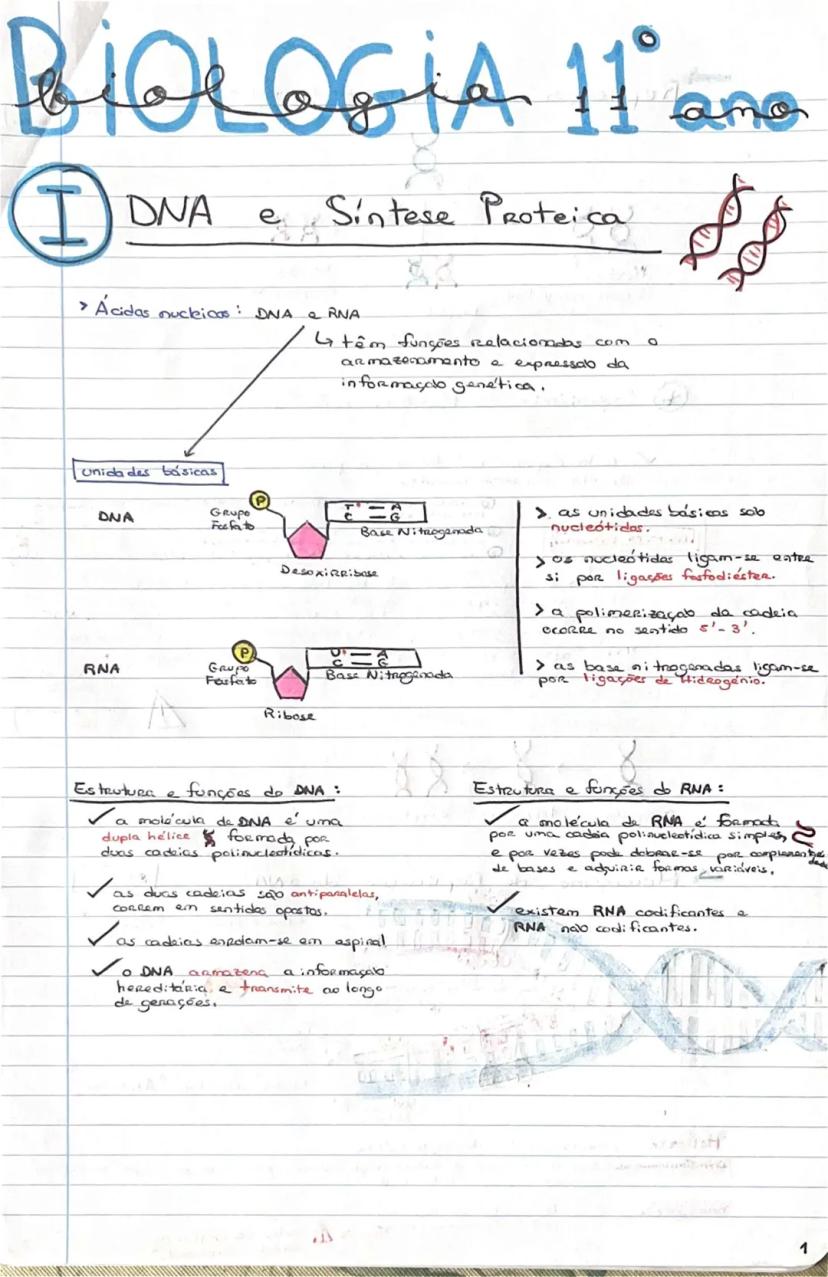 BIOLOGIA 11º ano
biologia 11
I DNA e Síntese Proteica
> Ácidos nucleicos: DNA e RNA
↳ têm funções relacionadas com o
armazenamento e expressão da
informação genética.
unidades básicas
DNA
P
Grupo
Fosfato
T = A
C ≡ G
Base Nitrogenada
Desoxirribose
> as unidades básicas são
nucleótidos.
> os nucleótidos ligam-se entre
si por ligações fosfodiéster.
> a polimerização da cadeia
ocorre no sentido 5'-3'.
> as base nitrogenadas ligam-se
por ligações de Hidrogénio.
RNA
P
Grupo
Fosfato
U = A
C ≡ G
Base Nitrogenada
Ribose
Estrutura e funções do DNA:
✓ a molécula de DNA é uma
dupla hélice formada por
duas cadeias polinucleotídicas.
✓ as duas cadeias são antiparalelas,
correm em sentidos opostos.
✓ as cadeias enrolam-se em espiral
✓ o DNA armazena a informação
hereditária e transmite ao longo
de gerações.
Estrutura e funções do RNA:
✓ a molécula de RNA é formada
por uma cadeia polinucleotídica simples,
e por vezes pode dobrar-se por complementari
dade
de bases e adquirir formas variáveis.
✓ existem RNA codificantes e
RNA não codificantes.
1